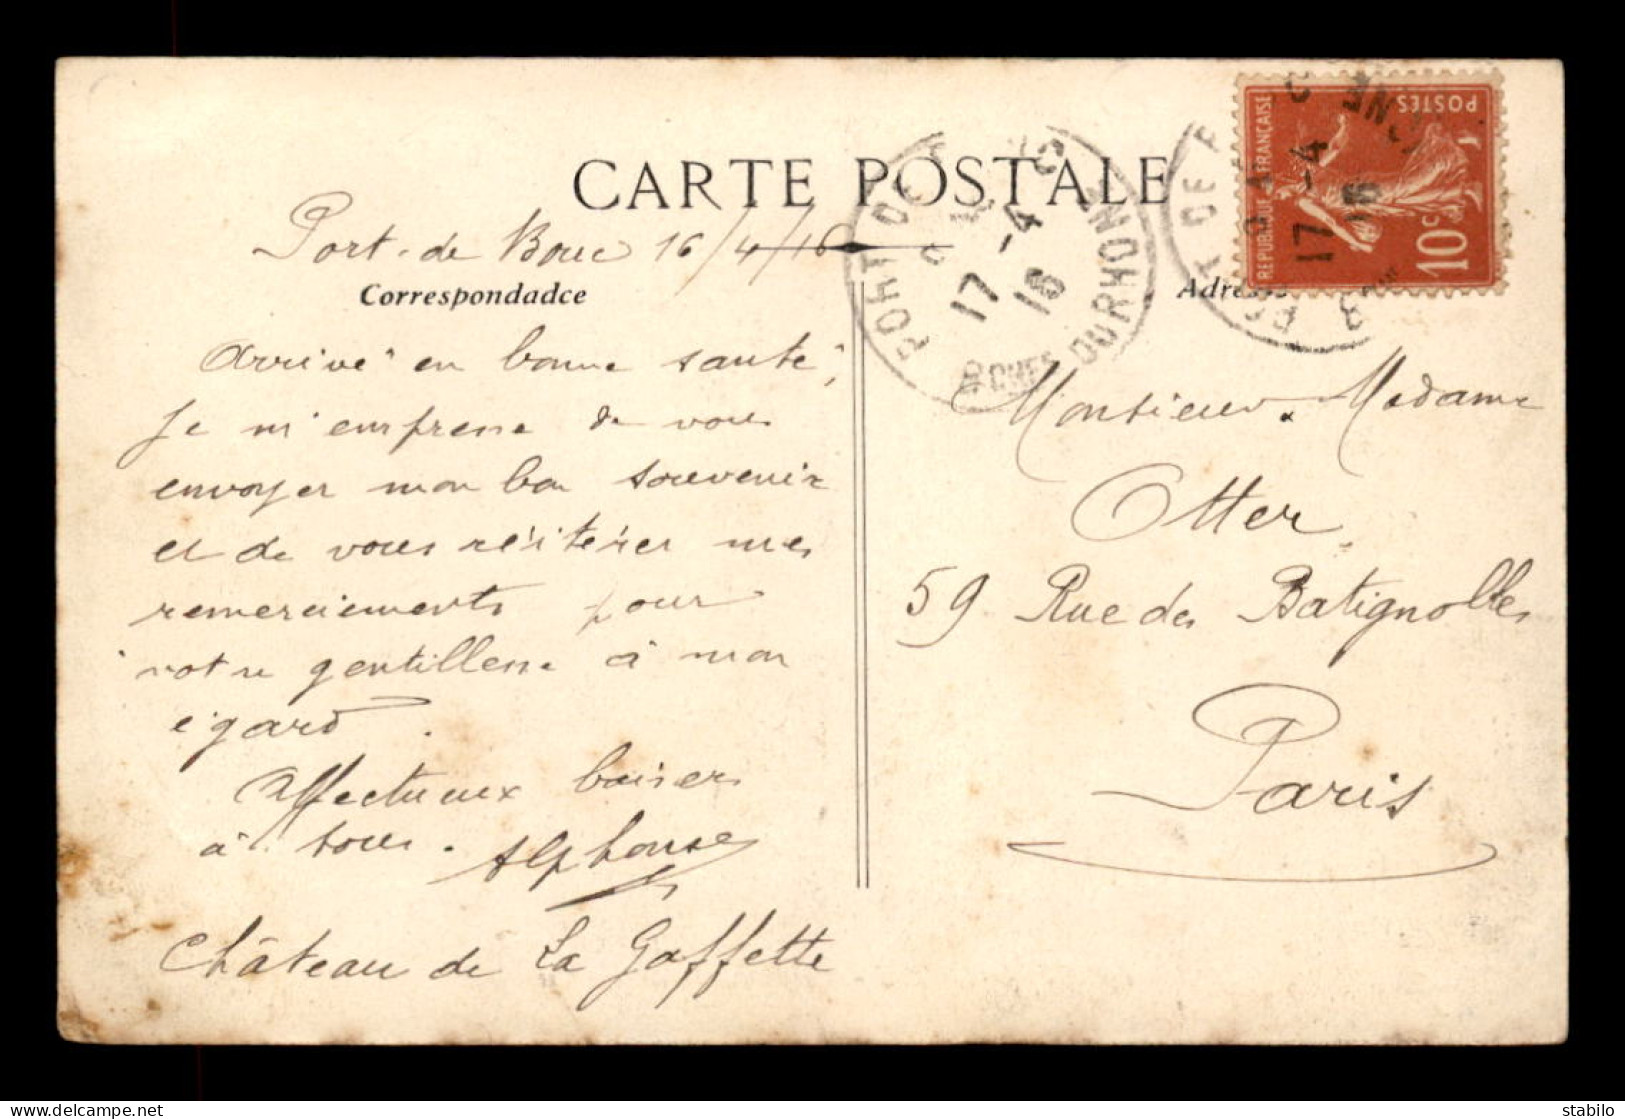 CARTE POSTALE
Port-de Bouc 16/4/16
Correspondadce
Arrivé en bonne santé,
Je m'empresse de vous
envoyer mon bon souvenir
et de vous réitérer mes
remerciements pour
votre gentillesse à mon
égard.
Affectueux baisers
à tous. Alphonse
Château de La Gaffette
PORT DE
17 -4
16
BCHES DU RHONE
REPUBLIQUE FRANÇAISE
POSTES
10c
17 -4
16
Adresse
Monsieur & Madame
Otter,
59 Rue des Batignolles
Paris
stabilo